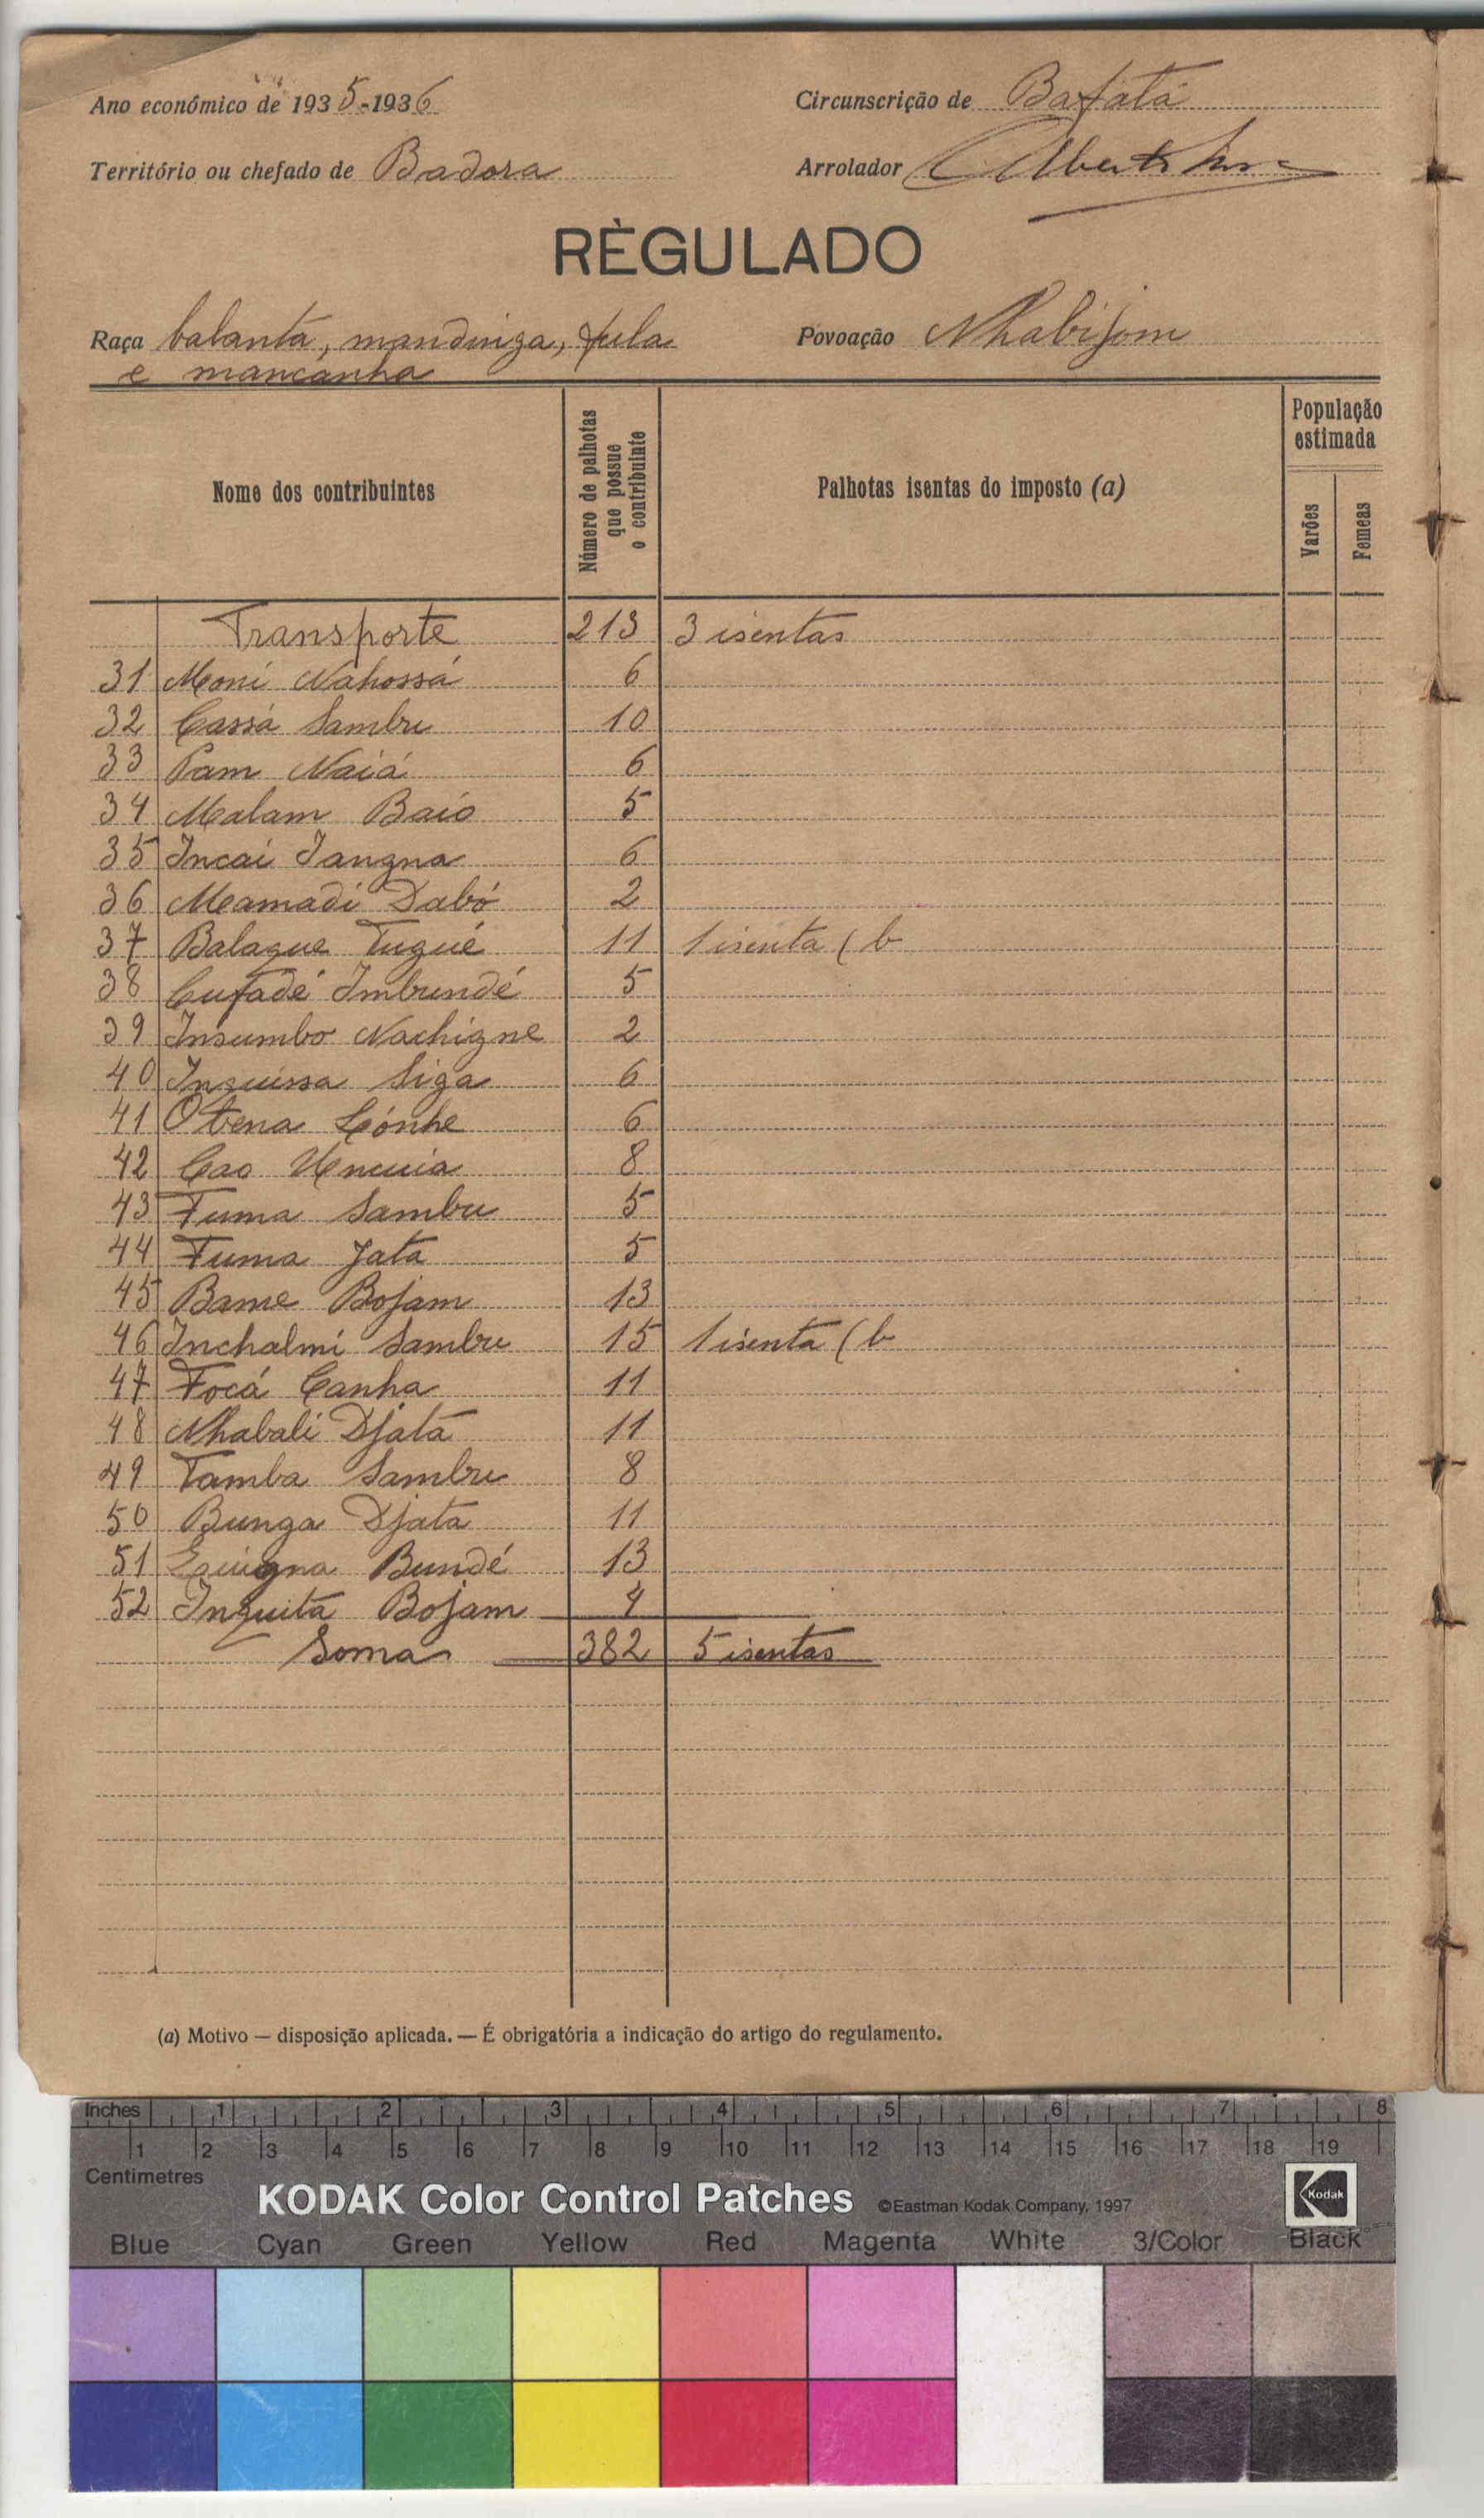 Ano económico de 1935-1936
Circunscrição de Bafatá
Território ou chefado de Badora
Arrolador Alberto
RÈGULADO
Raça balanta, mandinga, fula
e mancanha
Povoação Nhabijom
Nome dos contribuintes
Número de palhotas
que possue
o contribuinte
Palhotas isentas do imposto (a)
População
estimada
Varões
Femeas
Transporte 213 3 isentas
31 Moni Nahossá 6
32 Cassá Sambu 10
33 Pam Naiá 6
34 Malam Baio 5
35 Incai Tangna 6
36 Mamadi Dabó 2
37 Balague Tugué 11 1 isenta (b
38 Cufadé Imbundé 5
39 Insumbo Nachigne 2
40 Inquissa Siga 6
41 Obena Lónhe 6
42 Cao 8
43 Fuma Sambu 5
44 Fuma Jata 5
45 Bame Bojam 13
46 Inchalmi Sambu 15 1 isenta (b
47 Focá Canha 11
48 Nhabali Djata 11
49 Tamba Sambu 8
50 Bunga Djata 11
51 Bundé 13
52 Inquita Bojam 4
Soma 382 5 isentas
(a) Motivo — disposição aplicada. — É obrigatória a indicação do artigo do regulamento.
Inches 1 2 3 4 5 6 7 8
1 2 3 4 5 6 7 8 9 10 11 12 13 14 15 16 17 18 19
Centimetres
KODAK Color Control Patches ©Eastman Kodak Company, 1997 Kodak
Blue Cyan Green Yellow Red Magenta White 3/Color Black